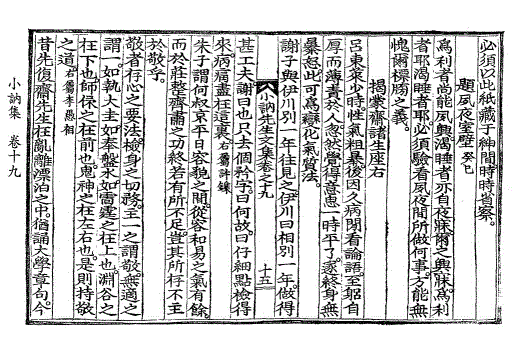 必須以此紙藏于紳間時時省察。
題夙夜室壁 癸巳
爲利者尚能夙興渴睡者亦自夜寐爾之興寐爲利
者耶渴睡者耶必須驗看夙夜間所做何事方能無
愧爾標牓之義。
揭蒙齋諸生座右
呂東萊少時性氣粗暴後因久病閒看論語至躬自
厚而薄責於人忽然覺得意思一時平了遂終身無
暴怒此可爲變化氣質法。
謝子與伊川別一年往見之伊川曰相別一年做得
小訥先生文集卷之十九 十五
甚工夫謝曰也只去個矜字曰何故曰仔細點檢得
來病痛盡在這裏 右書許
朱子謂何叔京平日容貌之間從容和易之氣有餘
而於莊整齊肅之功終若有所不足豈其所存不主
於敬乎。
敬者存心之要法檢身之切務主一之謂敬無適之
謂一如執大圭如奉盤水如雷霆之在上也淵谷之
在下也師保之在前也鬼神之在左右也是則持敬
之道 右書李愚相
昔先復齋先生在亂離漂泊之中猶誦大學章句今
小訥集 卷十九